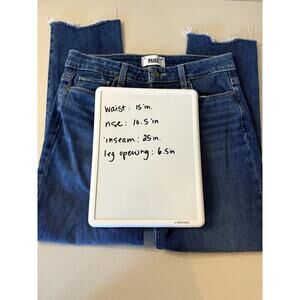 PAIGE
waist: 15 in.
rise: 10.5 in
inseam: 25 in.
leg opening: 6.5 in